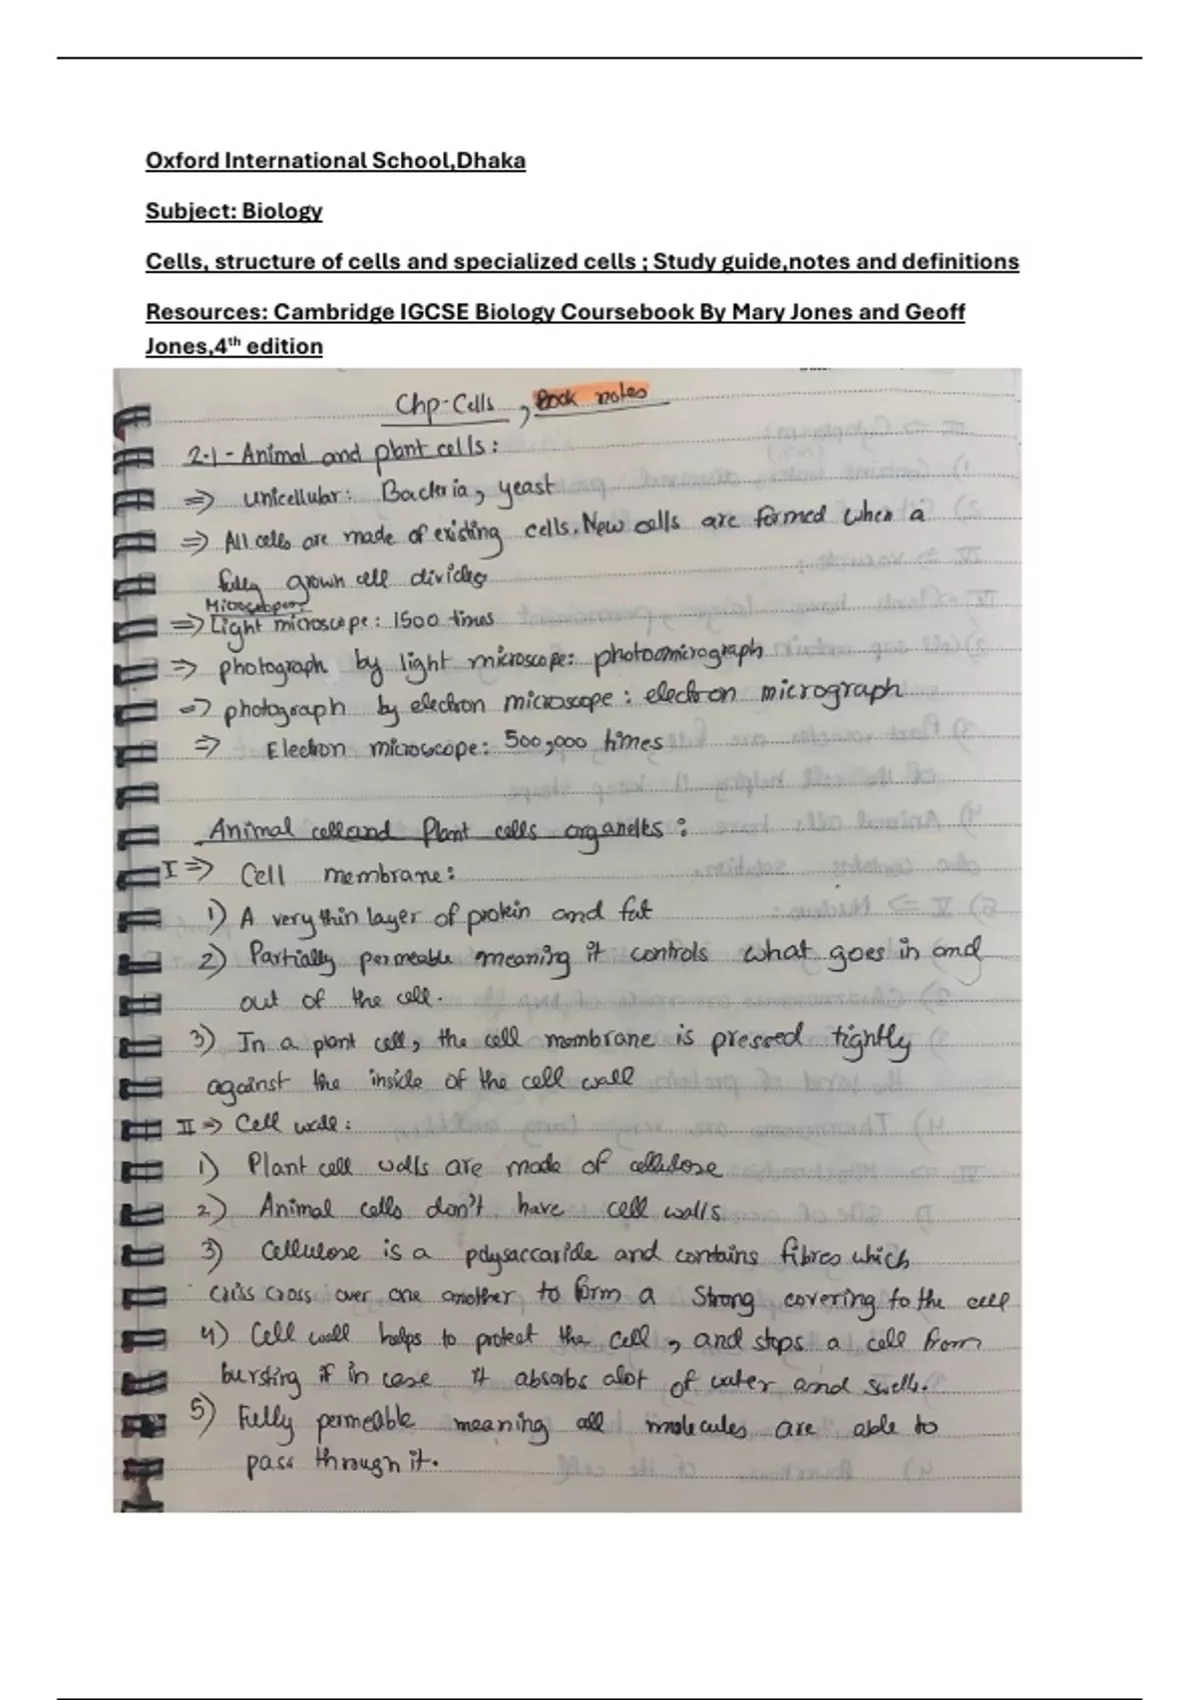 Oxford International School,Dhaka
Subject: Biology
Cells, structure of cells and specialized cells ; Study guide,notes and definitions
Resources: Cambridge IGCSE Biology Coursebook By Mary Jones and Geoff
Jones,4th edition
Chp-Cells , Book notes
2.1 - Animal and plant cells:
⇒ unicellular: Bacteria, yeast
⇒ All cells are made of existing cells. New cells are formed when a
fully grown cell divides
Microscopes:
⇒ Light microscope: 1500 times
⇒ photograph by light microscope: photoomicrograph
⇒ photograph by electron microscope: electron micrograph
⇒ Electron microscope: 500,000 times
Animal cell and Plant cells organelles:
I ⇒ Cell membrane:
1) A very thin layer of protein and fat
2) Partially permeable meaning it controls what goes in and
out of the cell.
3) In a plant cell, the cell membrane is pressed tightly
against the inside of the cell wall
II ⇒ Cell wall:
1) Plant cell walls are made of cellulose
2) Animal cells don't have cell walls
3) Cellulose is a polysaccaride and contains fibres which
criss cross over one another to form a strong covering to the cell
4) Cell wall helps to protect the cell, and stops a cell from
bursting if in case it absorbs alot of water and swells.
5) Fully permeable meaning all molecules are able to
pass through it.